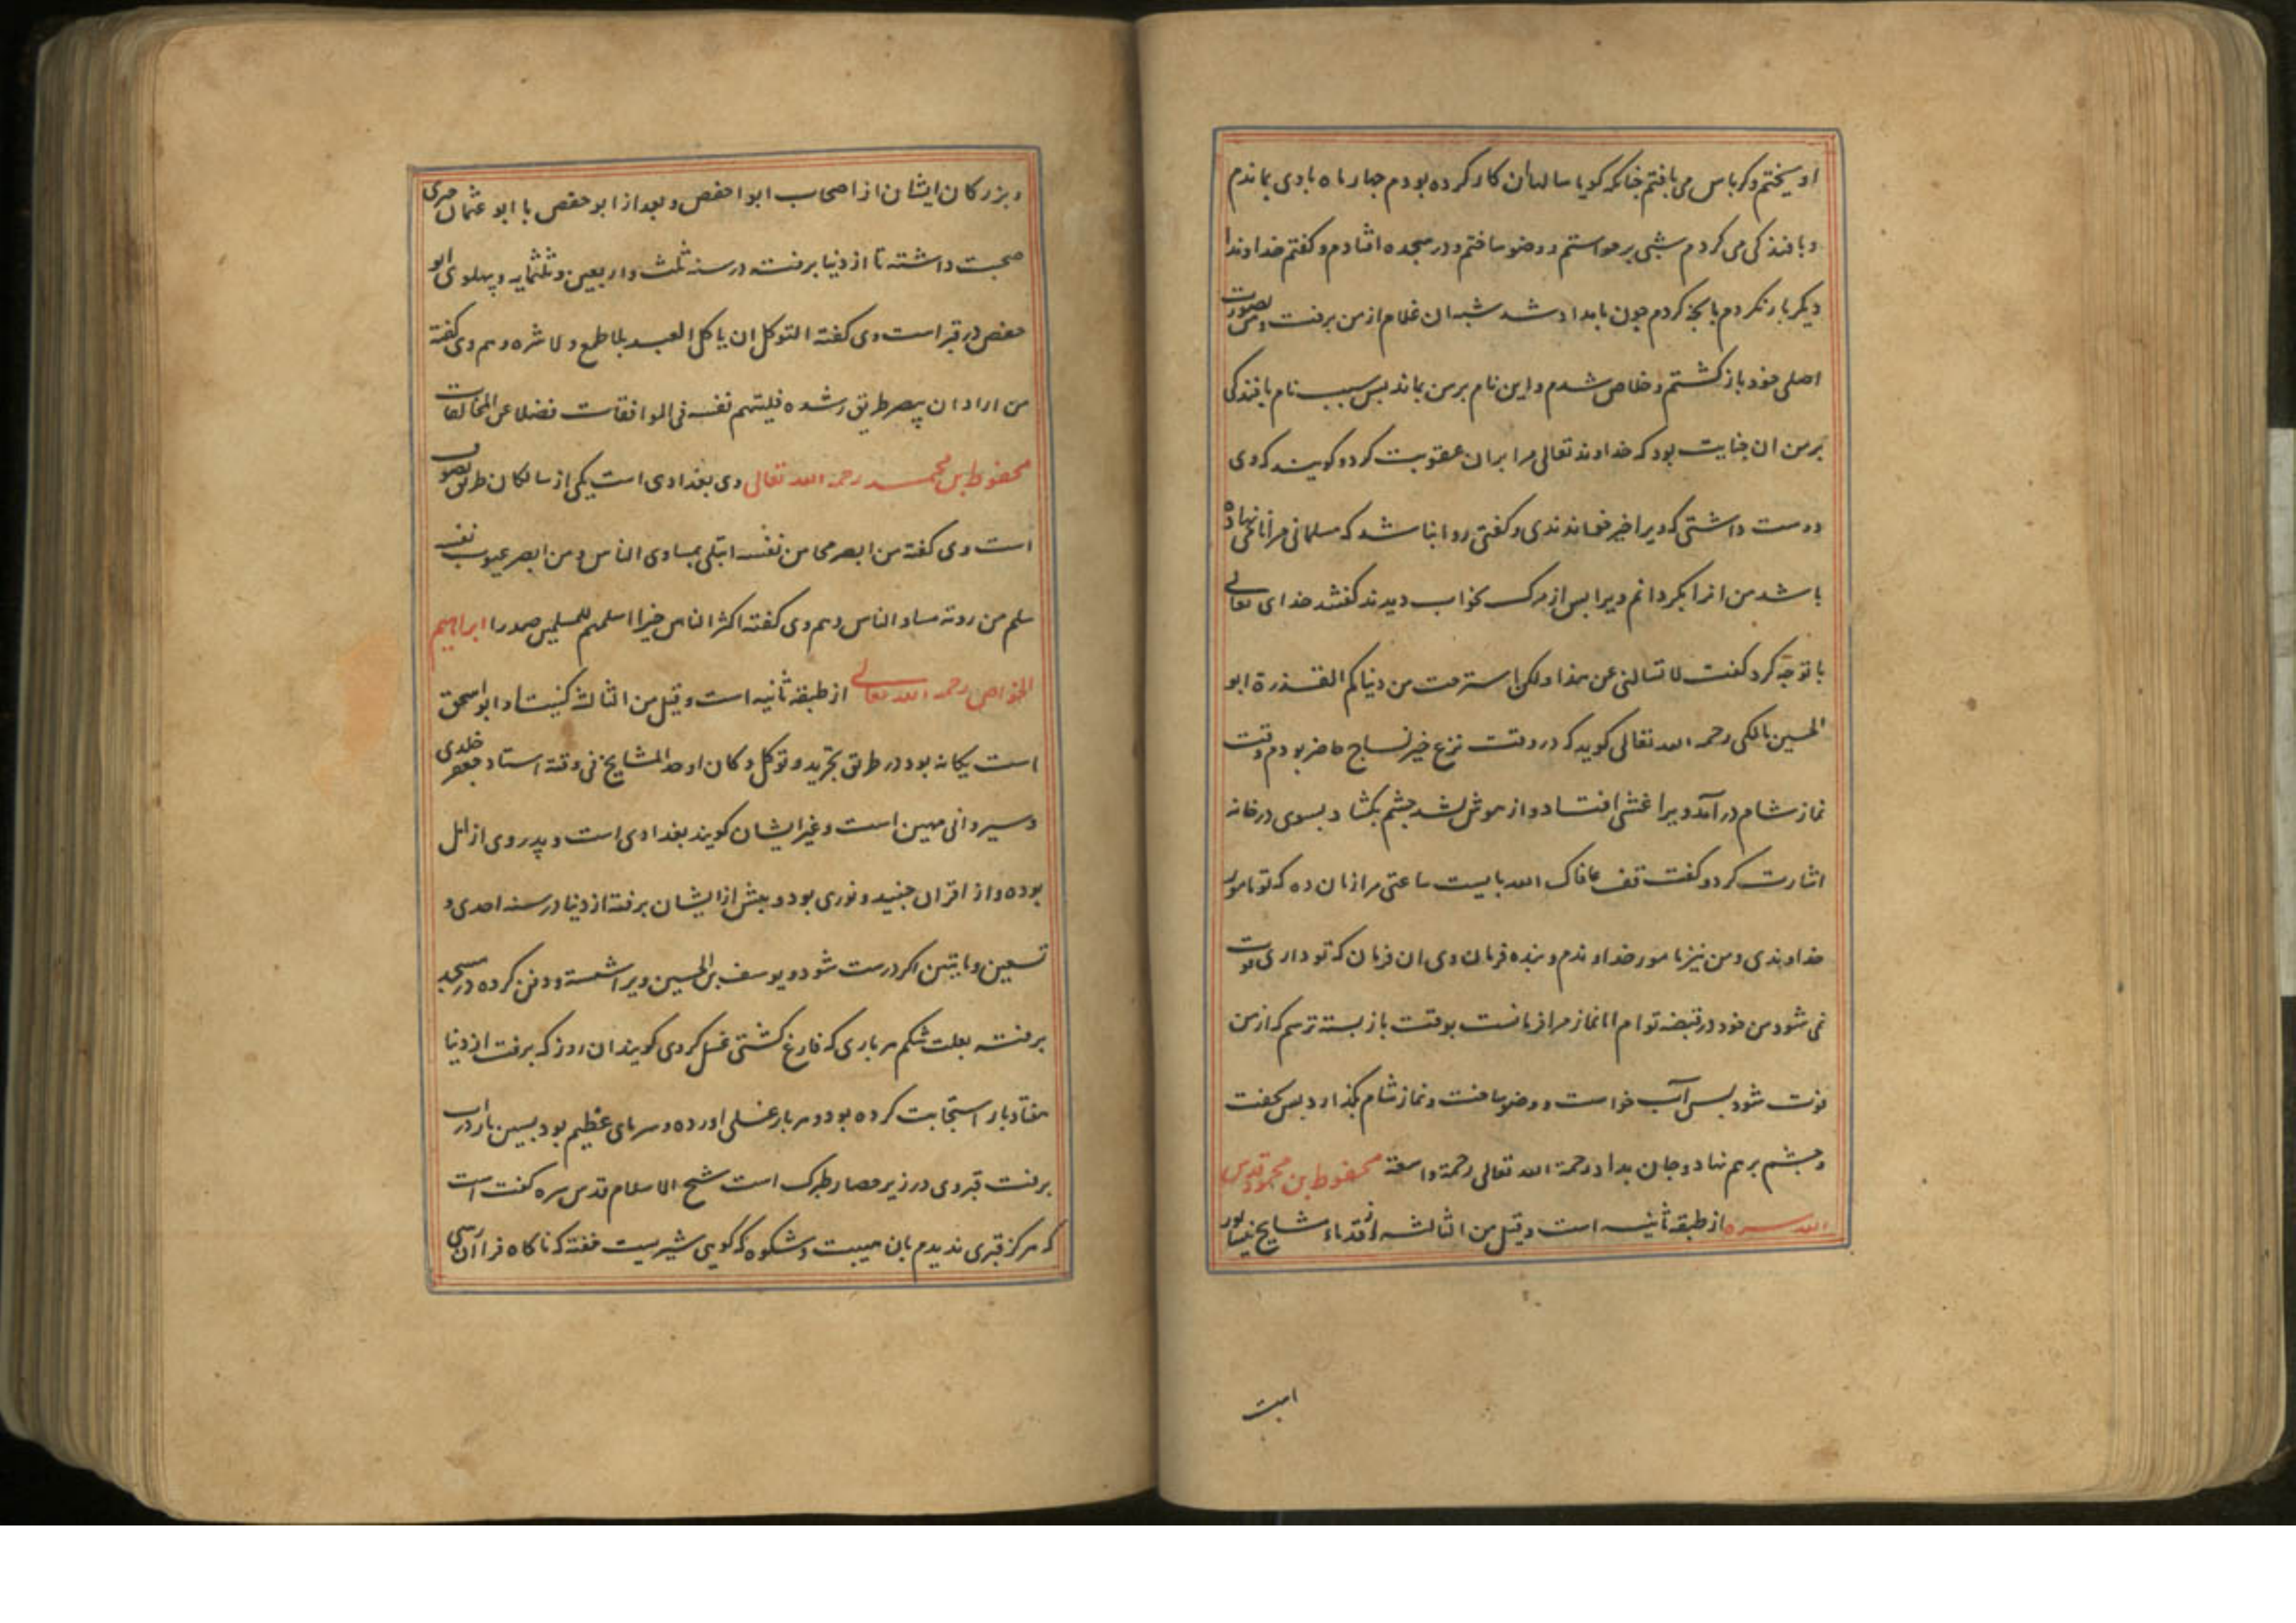 اویختم و کرباس می بافتم جنانکه کویا سالهاان کار کرده بودم جهار ماه با وی بماندم
و بافندکی می کردم شبی برخواستم و وضو ساختم و در سجده افتادم و کفتم خداوندا
دیکر بار نکردم بانجه کردم جون بامداد شد شبه ان غلام از من برفت و من بصورت
اصلی خود باز کشتم و خلاص شدم و این نام بر من بماند بس سبب نام بافندکی
بر من ان جنایت بود که خداوند تعالی مرا بران عقوبت کرد و کویند که وی
دوست داشتی که ویرا خیر خواندندی و کفتی روا نباشد که مسلمانی مرا نامی نهاده
باشد من انرا بکردانم ویرا بس از مرک بخواب دیدند کفتند خدای تعالی
با تو جه کرد کفت لا تسالنی عن هذا ولکن استرحت من دنیاکم القذرة ابو
الحسین مالکی رحمه الله تعالی کوید که در وقت نزع خیر نساج حاضر بودم وقت
نماز شام در آمد ویرا غشی افتاد و از هوش بشد جشم بکشاد و بسوی در خانه
اشارت کرد و کفت قف عافاک الله بایست ساعتی مرا زمان ده که تو مامور
خداوندی و من نیز مامور خداوندم و بنده فرمان وی ان فرمان که تو داری فوت
نمی شود من خود در قبضه توام اما نماز مرا فرمانست بوقت باز بسته ترسم که از من
فوت شود بس آب خواست و وضو ساخت و نماز شام بکذارد بس بخفت
و جشم برهم نهاد و جان بداد رحمة الله تعالی رحمة واسعة محفوظ بن محمود قدس
الله سره از طبقه ثانیه است و قیل من الثالثه از قدماء مشایخ نیسابور
است
و بزرکان ایشان از اصحاب ابوا حفص و بعد از ابو حفص با ابو عثمان حیری
صحبت داشته تا از دنیا برفت در سنه ثلث و اربعین و ثلثمایه و پهلوی ابو
حفص در قبر است وی کفته التوکل ان یاکل العبد بلا طمع و لا شره و هم وی کفته
من اراد ان یبصر طریق رشده فلیتهم نفسه فی الموافقات فضلا عن المخالفات
محفوظ بن محمد رحمه الله تعالی وی بغدادی است یکی از سالکان طریق تصوف
است وی کفته من ابصر محاسن نفسه ابتلی بمساوی الناس و من ابصر عیوب نفسه
سلم من رویة مساو الناس و هم وی کفته اکثر الناس خیرا اسلمهم للمسلمین صدرا ابراهیم
الخواص رحمه الله تعالی از طبقه ثانیه است و قیل من الثالثه کنیت او ابو اسحق
است یکانه بود در طریق تجرید و توکل و کان اوحد المشایخ فی وقته استاد جعفر خلدی
و سیروانی مهین است و غیر ایشان کویند بغدادی است و پدر وی از امل
بوده و از اقران جنید و نوری بود و بیش از ایشان برفته از دنیا در سنه احدی و
تسعین و مایتین اکر درست شود و یوسف بن الحسین ویرا شسته و دفن کرده در مسجد
برفته بعلت شکم هر باری که فارغ کشتی غسل کردی کویند ان روز که برفت از دنیا
هفتاد بار استجابت کرده بود و هر بار غسلی اورده و سرمای عظیم بود بسین بار در اب
برفت قبر وی در زیر حصار طبرک است شیخ الاسلام قدس سره کفت است
که هرکز قبری ندیدم بان هیبت و شکوه که کویی شیریست خفته که ناکاه فرا ان رسی